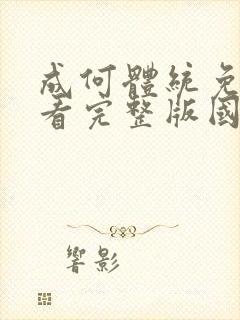 成何體統免
看完整版國
響影